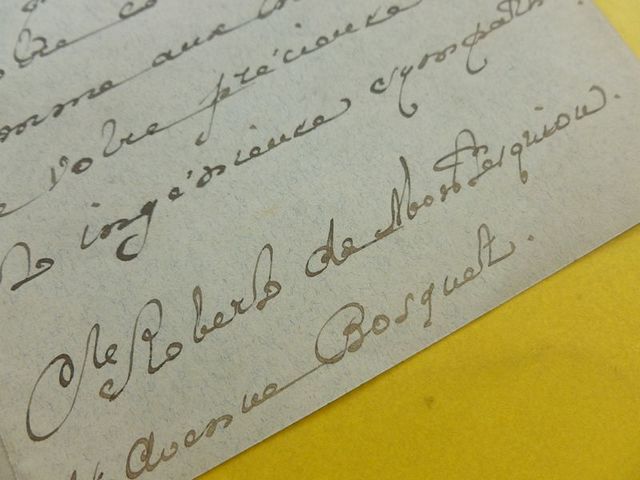 votre
comme aux
de votre précieuse
ingénieuse sympath
Cte Robert de Montesquiou.
Avenue Bosquet.